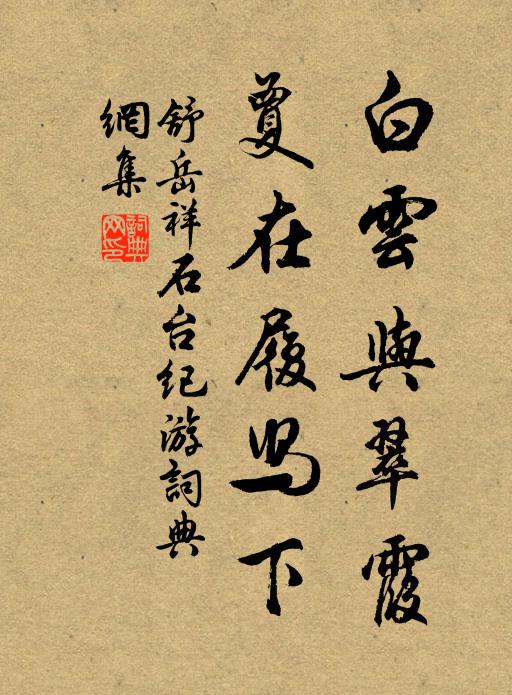 白雲與翠霞
夐在履舄下
舒岳祥石台紀游詞典
網集
詞典
网印